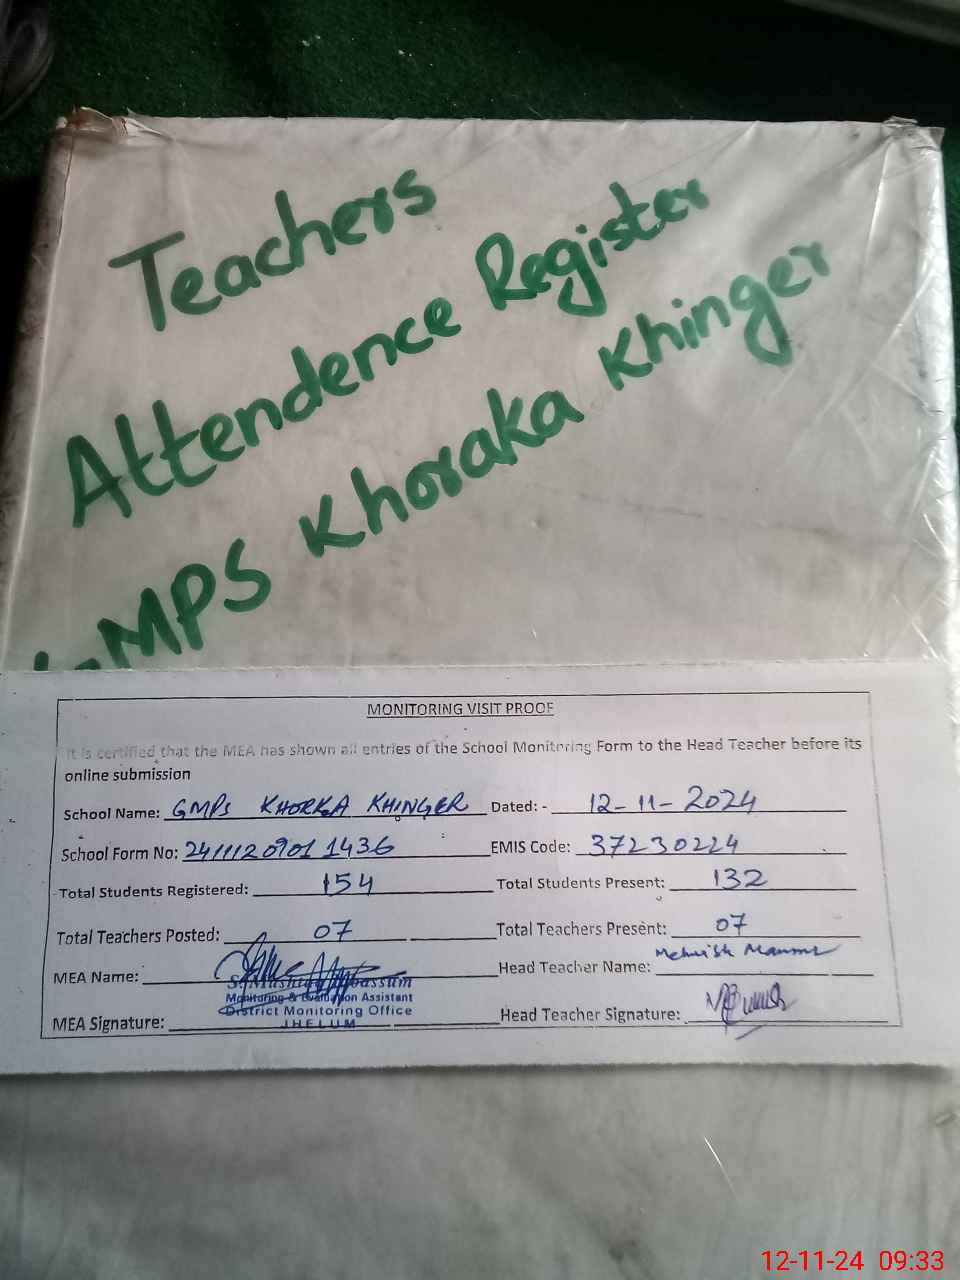 Teachers
Attendence Register
GMPS Khoraka Khinger
MONITORING VISIT PROOF
It is certified that the MEA has shown all entries of the School Monitoring Form to the Head Teacher before its
online submission
School Name: GMPS KHORKA KHINGER Dated: - 12-11-2024
School Form No: 2411120901 1436 EMIS Code: 37230224
Total Students Registered: 154 Total Students Present: 132
Total Teachers Posted: 07 Total Teachers Present: 07
MEA Name: Head Teacher Name: Mehwish
Monitoring & Evaluation Assistant
District Monitoring Office
MEA Signature: Head Teacher Signature:
JHELUM
12-11-24 09:33